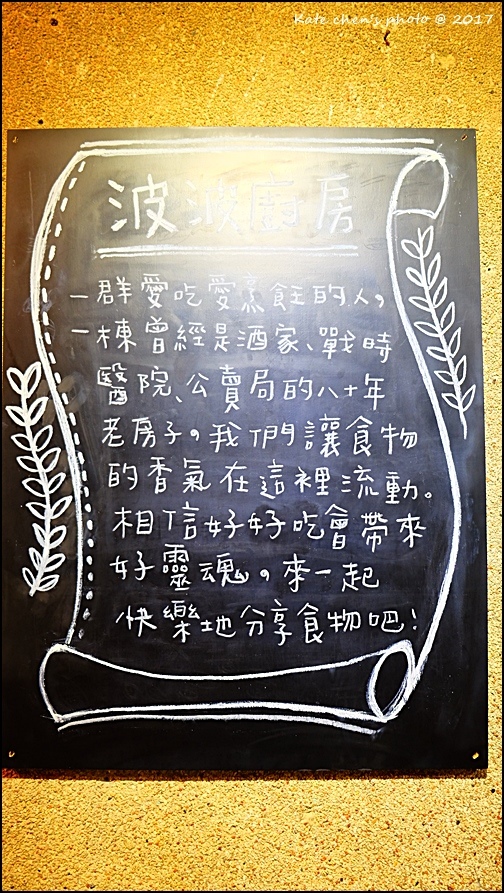 Kate chen's photo @ 2017
波波廚房
一群愛吃愛烹飪的人。
一棟曾經是酒家、戰時
醫院、公賣局的八十年
老房子。我們讓食物
的香氣在這裡流動。
相信好好吃會帶來
好靈魂。來一起
快樂地分享食物吧!